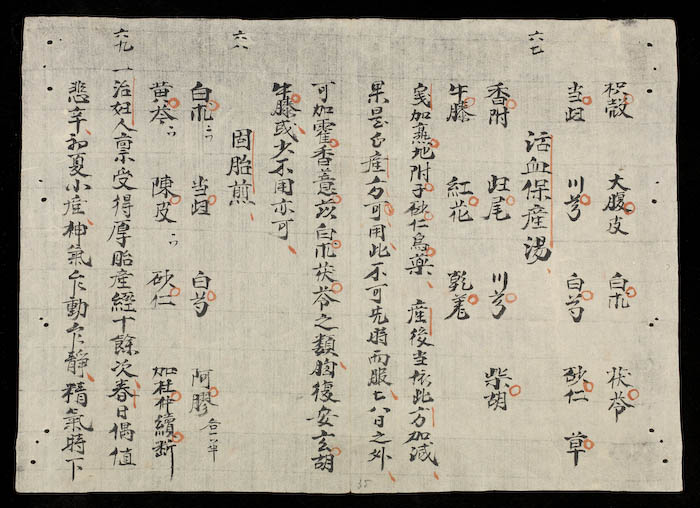 枳殼 大腹皮 白朮 茯苓
当归 川芎 白芍 砂仁 草
六七
活血保産湯
香附 归尾 川芎 柴胡
牛膝 紅花 乾姜
加熟地附子砂仁烏藥 産後当依此方加減
果是正産方可用此不可先時而服七八日之外
可加霍香薏苡白朮茯苓之類胸復安玄胡
牛膝或少不用亦可
六八
固胎煎
白朮二 当归 白芍 阿膠
黄芩二 陳皮二 砂仁 加杜仲續断
六九
一治妇人禀受得厚胎産經十餘次春日偶值
悲辛初夏小産神氣乍動乍靜精氣時下
35